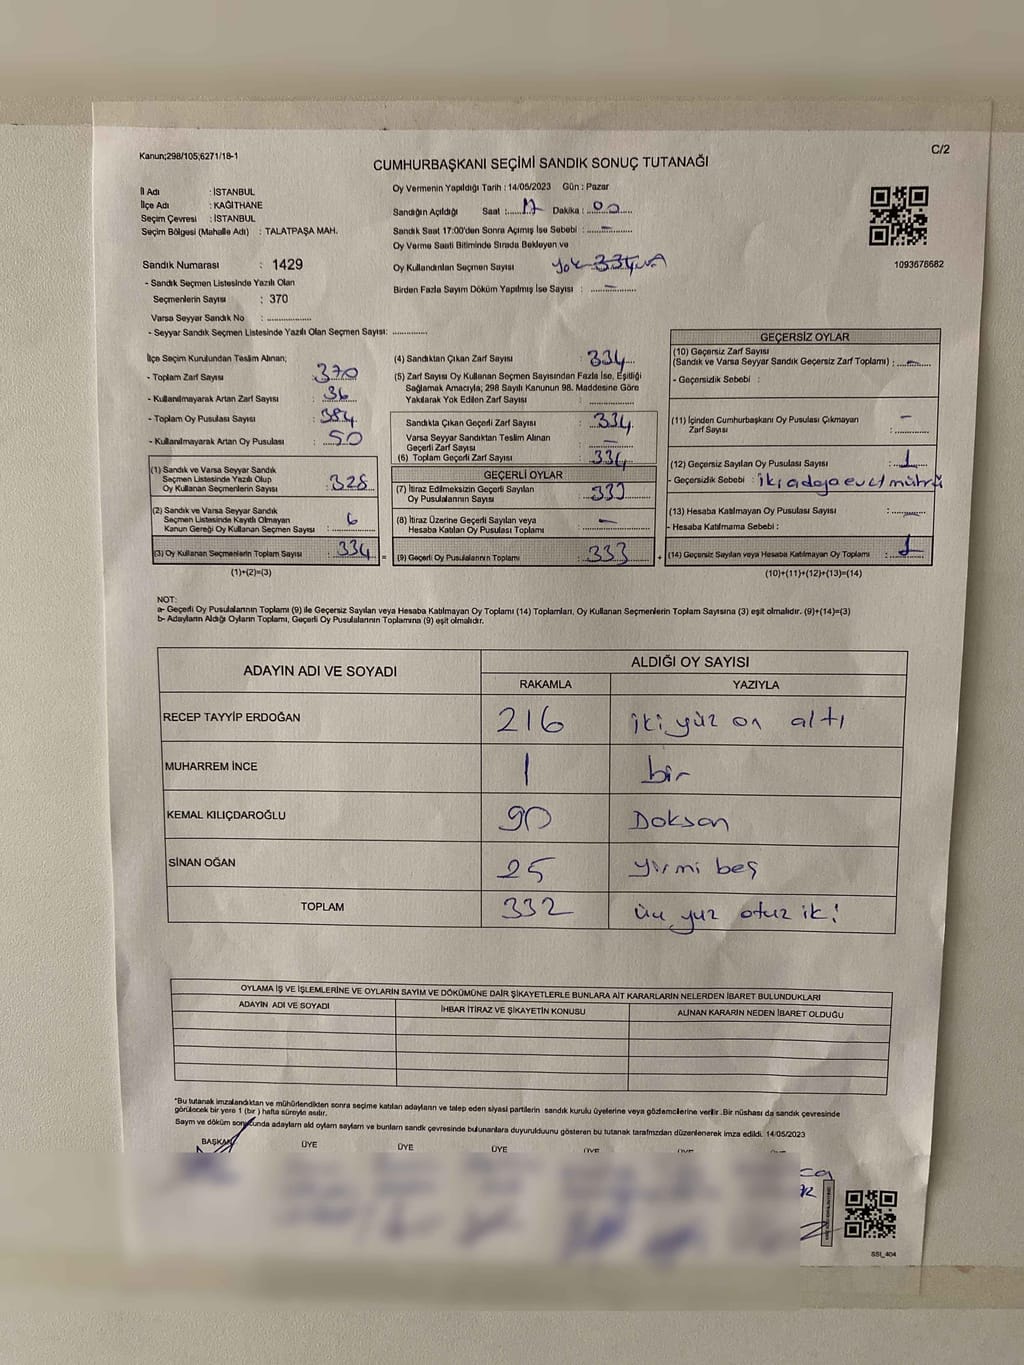 Kanun;298/105;6271/18-1
C/2
CUMHURBAŞKANI SEÇİMİ SANDIK SONUÇ TUTANAĞI
İl Adı : İSTANBUL
İlçe Adı : KAĞITHANE
Seçim Çevresi : İSTANBUL
Seçim Bölgesi (Mahalle Adı) : TALATPAŞA MAH.
Sandık Numarası : 1429
- Sandık Seçmen Listesinde Yazılı Olan
Seçmenlerin Sayısı : 370
Varsa Seyyar Sandık No : ..............
- Seyyar Sandık Seçmen Listesinde Yazılı Olan Seçmen Sayısı: ..............
Oy Vermenin Yapıldığı Tarih : 14/05/2023 Gün : Pazar
Sandığın Açıldığı Saat :..... 17 Dakika : 00
Sandık Saat 17:00'den Sonra Açımış İse Sebebi : –
Oy Verme Saati Bitiminde Sırada Bekleyen ve
Oy Kullandırılan Seçmen Sayısı yok 334
Birden Fazla Sayım Döküm Yapılmış İse Sayısı : –
1093678682
İlçe Seçim Kurulundan Teslim Alınan;
- Toplam Zarf Sayısı : 370
- Kullanılmayarak Artan Zarf Sayısı : 36
- Toplam Oy Pusulası Sayısı : 384
- Kullanılmayarak Artan Oy Pusulası : 50
(1) Sandık ve Varsa Seyyar Sandık
Seçmen Listesinde Yazılı Olup
Oy Kullanan Seçmenlerin Sayısı : 328
(2) Sandık ve Varsa Seyyar Sandık
Seçmen Listesinde Kayıtlı Olmayan
Kanun Gereği Oy Kullanan Seçmen Sayısı : 6
(3) Oy Kullanan Seçmenlerin Toplam Sayısı : 334
=
(1)+(2)=(3)
(4) Sandıktan Çıkan Zarf Sayısı : 334
(5) Zarf Sayısı Oy Kullanan Seçmen Sayısından Fazla İse, Eşitliği
Sağlamak Amacıyla; 298 Sayılı Kanunun 98. Maddesine Göre
Yakılarak Yok Edilen Zarf Sayısı : ..............
Sandıkta Çıkan Geçerli Zarf Sayısı : 334
Varsa Seyyar Sandıktan Teslim Alınan
Geçerli Zarf Sayısı : –
(6) Toplam Geçerli Zarf Sayısı : 334
GEÇERLİ OYLAR
(7) İtiraz Edilmeksizin Geçerli Sayılan
Oy Pusulalarının Sayısı : 333
(8) İtiraz Üzerine Geçerli Sayılan veya
Hesaba Katılan Oy Pusulası Toplamı : –
(9) Geçerli Oy Pusulalarının Toplamı : 333
+
GEÇERSİZ OYLAR
(10) Geçersiz Zarf Sayısı
(Sandık ve Varsa Seyyar Sandık Geçersiz Zarf Toplamı) : –
- Geçersizlik Sebebi :
(11) İçinden Cumhurbaşkanı Oy Pusulası Çıkmayan
Zarf Sayısı : –
(12) Geçersiz Sayılan Oy Pusulası Sayısı : 1
- Geçersizlik Sebebi : iki adaya evet mührü
(13) Hesaba Katılmayan Oy Pusulası Sayısı : –
- Hesaba Katılmama Sebebi :
(14) Geçersiz Sayılan veya Hesaba Katılmayan Oy Toplamı : 1
(10)+(11)+(12)+(13)=(14)
NOT:
a- Geçerli Oy Pusulalarının Toplamı (9) ile Geçersiz Sayılan veya Hesaba Katılmayan Oy Toplamı (14) Toplamları, Oy Kullanan Seçmenlerin Toplam Sayısına (3) eşit olmalıdır. (9)+(14)=(3)
b- Adayların Aldığı Oyların Toplamı, Geçerli Oy Pusulalarının Toplamına (9) eşit olmalıdır.
ADAYIN ADI VE SOYADI ALDIĞI OY SAYISI
RAKAMLA YAZIYLA
RECEP TAYYİP ERDOĞAN 216 iki yüz on altı
MUHARREM İNCE 1 bir
KEMAL KILIÇDAROĞLU 90 Doksan
SİNAN OĞAN 25 yirmi beş
TOPLAM 332 üç yuz otuz iki
OYLAMA İŞ VE İŞLEMLERİNE VE OYLARIN SAYIM VE DÖKÜMÜNE DAİR ŞİKAYETLERLE BUNLARA AİT KARARLARIN NELERDEN İBARET BULUNDUKLARI
ADAYIN ADI VE SOYADI İHBAR İTİRAZ VE ŞİKAYETİN KONUSU ALINAN KARARIN NEDEN İBARET OLDUĞU
*Bu tutanak imzalandıktan ve mühürlendikten sonra seçime katılan adayların ve talep eden siyasi partilerin sandık kurulu üyelerine veya gözlemcilerine verilir. Bir nüshası da sandık çevresinde
görülecek bir yere 1 (bir) hafta süreyle asılır.
Sayım ve döküm sonucunda adayların aldı oyların sayların ve bunların sandık çevresinde bulunanlara duyurulduunu gösteren bu tutanak tarafımızdan düzenlenerek imza edildi. 14/05/2023
BAŞKAN ÜYE ÜYE ÜYE ÜYE
SSI_404